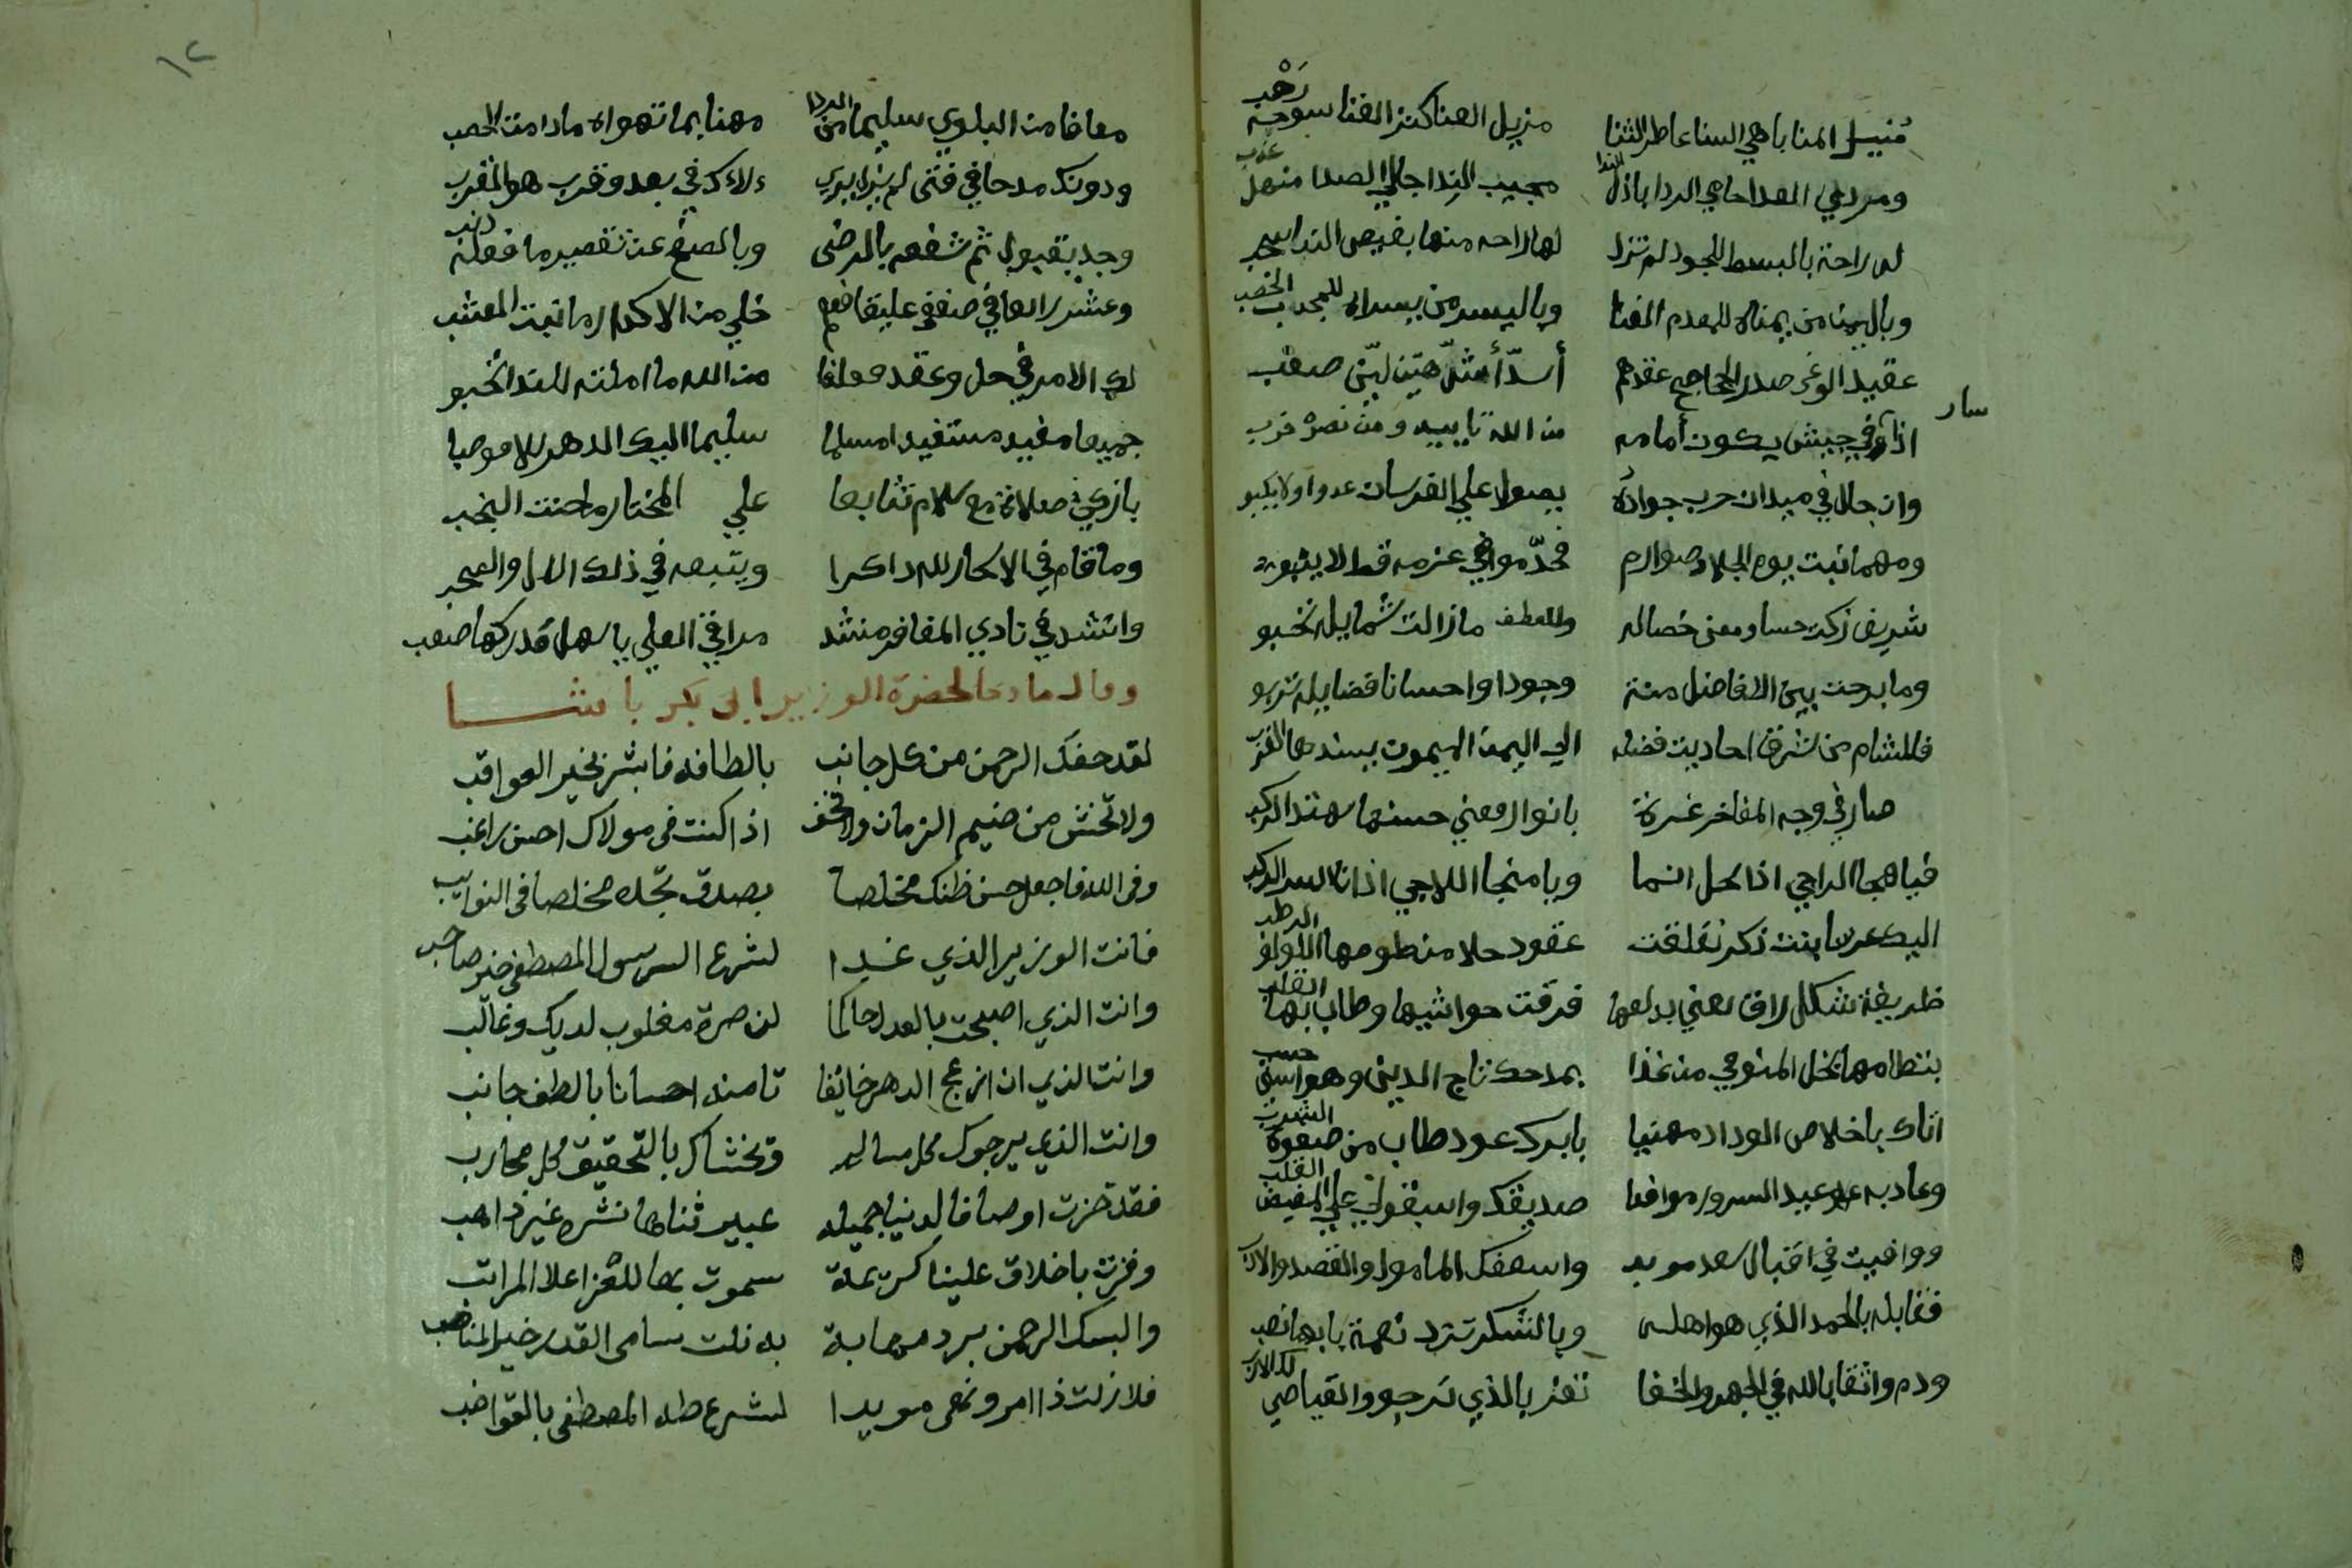 منيل المنا باهي السنا عاطر الثنا مزيل العنا كنز الغنا سوحه رحب
ومردي العدا حامي الردا باذل الندا مجيب الندا جالي الصدا منهل عذب
له راحة بالبسط للجود لم تزل لها راحه منها بفيض الندا سحب
وباليمن من يمناه للمعدم الغنا وباليسر من يسراه للمجدب الخصب
عقيد الوغى صدر الجحاجح عقدهم أسدّ أشدّ هيّن ليّن صعب
اذا سار في جيش يكون أمامه من الله تاييد ومن نصره حزب
وان جال في ميدان حرب جواده يصول على الفرسان عدوا ولا يكبو
ومهما نبت يوم الجلاد صوارم فحدّ مواضي عزمه قط لا ينبو
شريف زكت حسا ومعنى خصاله وللعطف مازالت شمايله تحبو
وما برحت بين الافاضل منة وجودا واحسانا فضايله تربو
فللشام من شرق احاديث فضله الى اليمن الميمون يسندها الغرب
صار في وجه المفاخر غرة بانوار معنى حسنها يهتدا الركب
فيا ملجا الراجي اذا محل انما ويا منجا اللاجي اذا
اليك عرسا بنت ذكر تعلقت عقود حلا منظومها اللولو الرطب
ظريفة شكل راق معنى بديعها فرقت حواشيها وطاب بها القلب
بنظامها نجل المنوحي من غذا بمدحك تاج الدين وهو حسب
اتاك باخلاص الوداد مهنيا بابرك عود طاب من صفوه الشرب
وعاد به عيد السرور موافيا صديقك واستولى على المبغض القلب
ووافيت في اقبال سعد مويد واسعفك المامول والقصد والارب
فقابله بالحمد الذي هو اهله وبالشكر تزد نعمة
ودم واثقا بالله في الجهر والخفا تفز بالذي ترجو
معافا من البلوى سليما من الردا مهنا بما تهواه مادامت الحقب
ودونك مدحا في فتى لم يزل يرى ولاءك في بعد وقرب هو القرب
وجد بقبول ثم شفعه بالرضى وبالصفح عن تقصير ما فعله ذنب
وعش رائعا في صفو خلي من الاكدار ما نبت العشب
لك الامر في حل وعقد من الله ما املته للندا تحبو
جميعا مفيد مستفيدا مسلما سليما اليك الدهر
بازكى صلاة مع سلام تتابعا على المختار ما حنت النجب
وما قام في الاسحار لله ذاكرا ويتبعه في ذلك الال والصحب
وانشد في نادي المفاخر منشد مراقي العلى يا سهل مدركها صعب
وقال مادحا لحضرة الوزير ابى بكر باشا
لقد حفك الرحمن من كل جانب بالطافه فابشر بخير العواقب
ولا تخش من ضيم الزمان ولا تخف اذا كنت فى مولاك احسن راغب
وفى الله فاجعل حسن ظنك مخلصا بصدق تجده مخلصا فى النوايب
فانت الوزير الذي غدا لشرع الرسول المصطفى خير صاحب
وانت الذي اصبحت بالعدل حاكما لنصرة مغلوب لديك وغالب
وانت الذي ان ازعج الدهر خائفا تامنه احسانا بالطف جانب
وانت الذي يرجوك كل مسالم وتخشاك بالتحقيق كل محارب
فقد حزت اوصافا لدنيا جميله عبير ثناها نشره غير ذاهب
وفزت باخلاق علينا كريمة سموت بها للعز اعلا المراتب
والبسك الرحمن برد مهابة به نلت سامى القدر خير المناصب
فلا زلت ذا امر ونهى مويدا لشرع طه المصطفى بالقواضب
١٢